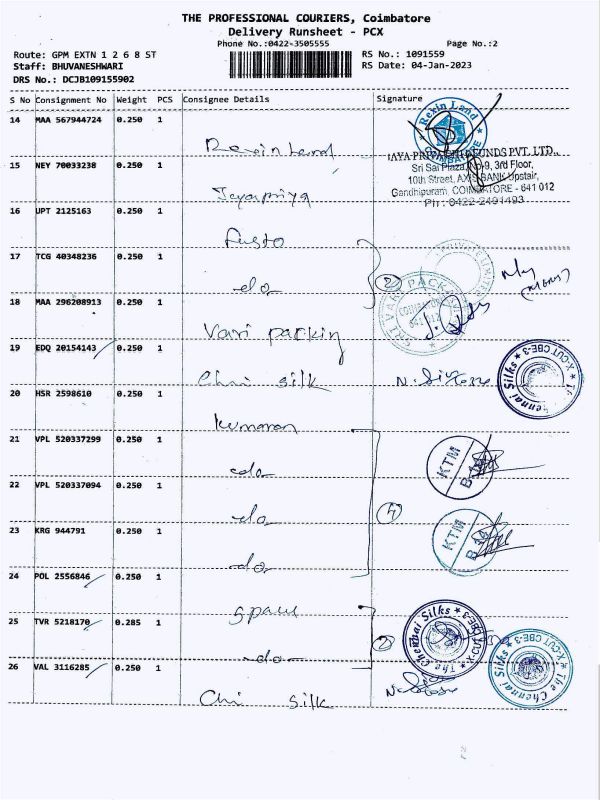 THE PROFESSIONAL COURIERS, Coimbatore
Delivery Runsheet - PCX
Phone No.:0422-3505555
Page No.:2
Route: GPM EXTN 1 2 6 8 ST
RS No.: 1091559
Staff: BHUVANESHWARI
RS Date: 04-Jan-2023
DRS No.: DCJB109155902
S No Consignment No Weight PCS Consignee Details Signature
14 MAA 567944724 0.250 1
Rexin Land
Rexin Land
COIMBATORE
15 NEY 70033238 0.250 1
Jayapriya
JAYA PRIYA FUNDS PVT. LTD.,
Sri Sai Plaza, No-9, 3rd Floor,
10th Street, AXIS BANK Upstair,
Gandhipuram, COIMBATORE - 641 012
Ph: 0422-2491493
16 UPT 2125163 0.250 1
17 TCG 40348236 0.250 1
do
2
PRIVATE LIMITED
18 MAA 296208913 0.250 1
Vari packing
SRI VARI PACK
COIMBATORE
19 EDQ 20154143 0.250 1
Chi silk
The Chennai Silks X-CUT CBE-3
20 HSR 2598610 0.250 1
Kumaran
21 VPL 520337299 0.250 1
do
KTM
22 VPL 520337094 0.250 1
do
4
23 KRG 944791 0.250 1
do
KTM
24 POL 2556846 0.250 1
25 TVR 5218170 0.285 1
do
2
The Chennai Silks X-CUT CBE-3
26 VAL 3116285 0.250 1
Chi silk
The Chennai Silks X-CUT CBE-3